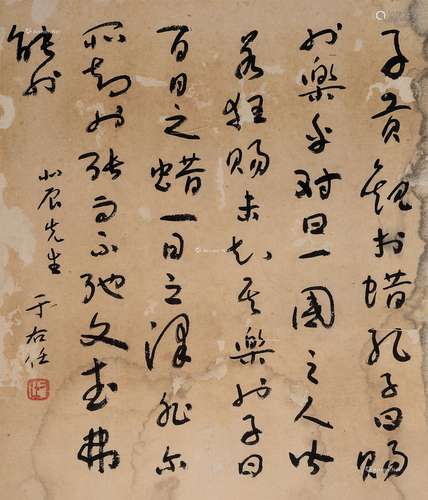 子貢觀於蜡孔子曰賜
也樂乎對曰一國之人皆
若狂賜未知其樂也子曰
百日之蜡一日之澤非爾
所知也張而不弛文武弗
能也
北辰先生
于右任